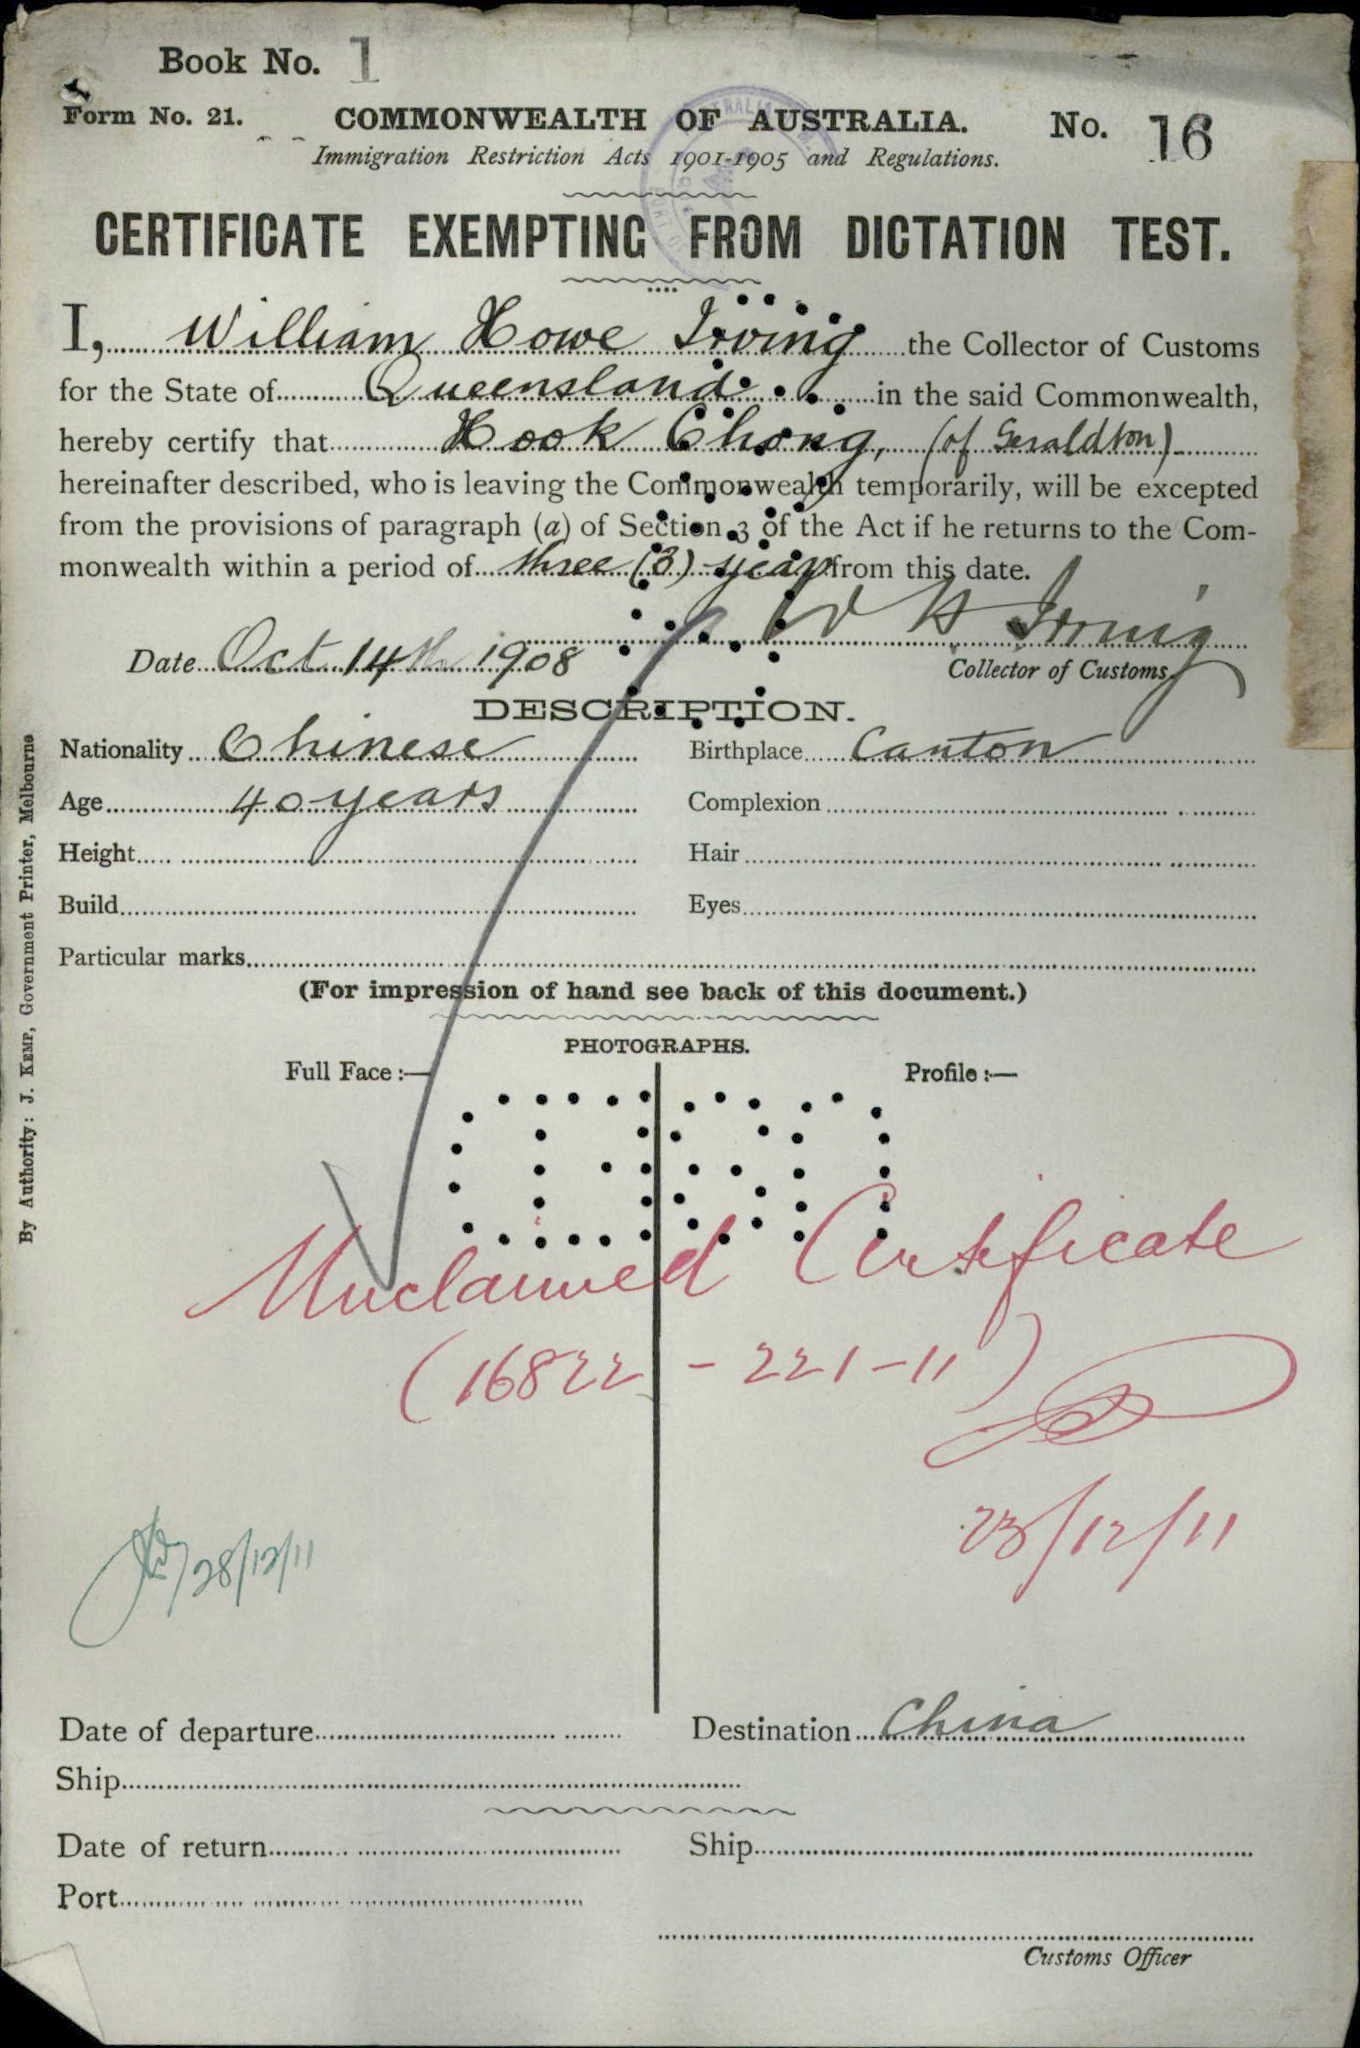 Book No. 1
Form No. 21. COMMONWEALTH OF AUSTRALIA. No. 16
Immigration Restriction Acts 1901-1905 and Regulations.
CERTIFICATE EXEMPTING FROM DICTATION TEST.
I, William Howe Irving the Collector of Customs
for the State of Queensland in the said Commonwealth,
hereby certify that Hook Chong, (of Geraldton)
hereinafter described, who is leaving the Commonwealth temporarily, will be excepted
from the provisions of paragraph (a) of Section 3 of the Act if he returns to the Com-
monwealth within a period of three (3) years from this date.
W H Irving
Date Oct 14th 1908 Collector of Customs.
DESCRIPTION.
Nationality Chinese Birthplace Canton
Age 40 years Complexion
Height Hair
Build Eyes
Particular marks
(For impression of hand see back of this document.)
PHOTOGRAPHS.
Full Face :— Profile :—
Unclaimed Certificate
(16822 - 221-11)
23/12/11
28/12/11
Date of departure Destination China
Ship
Date of return Ship
Port
Customs Officer
By Authority: J. KEMP, Government Printer, Melbourne